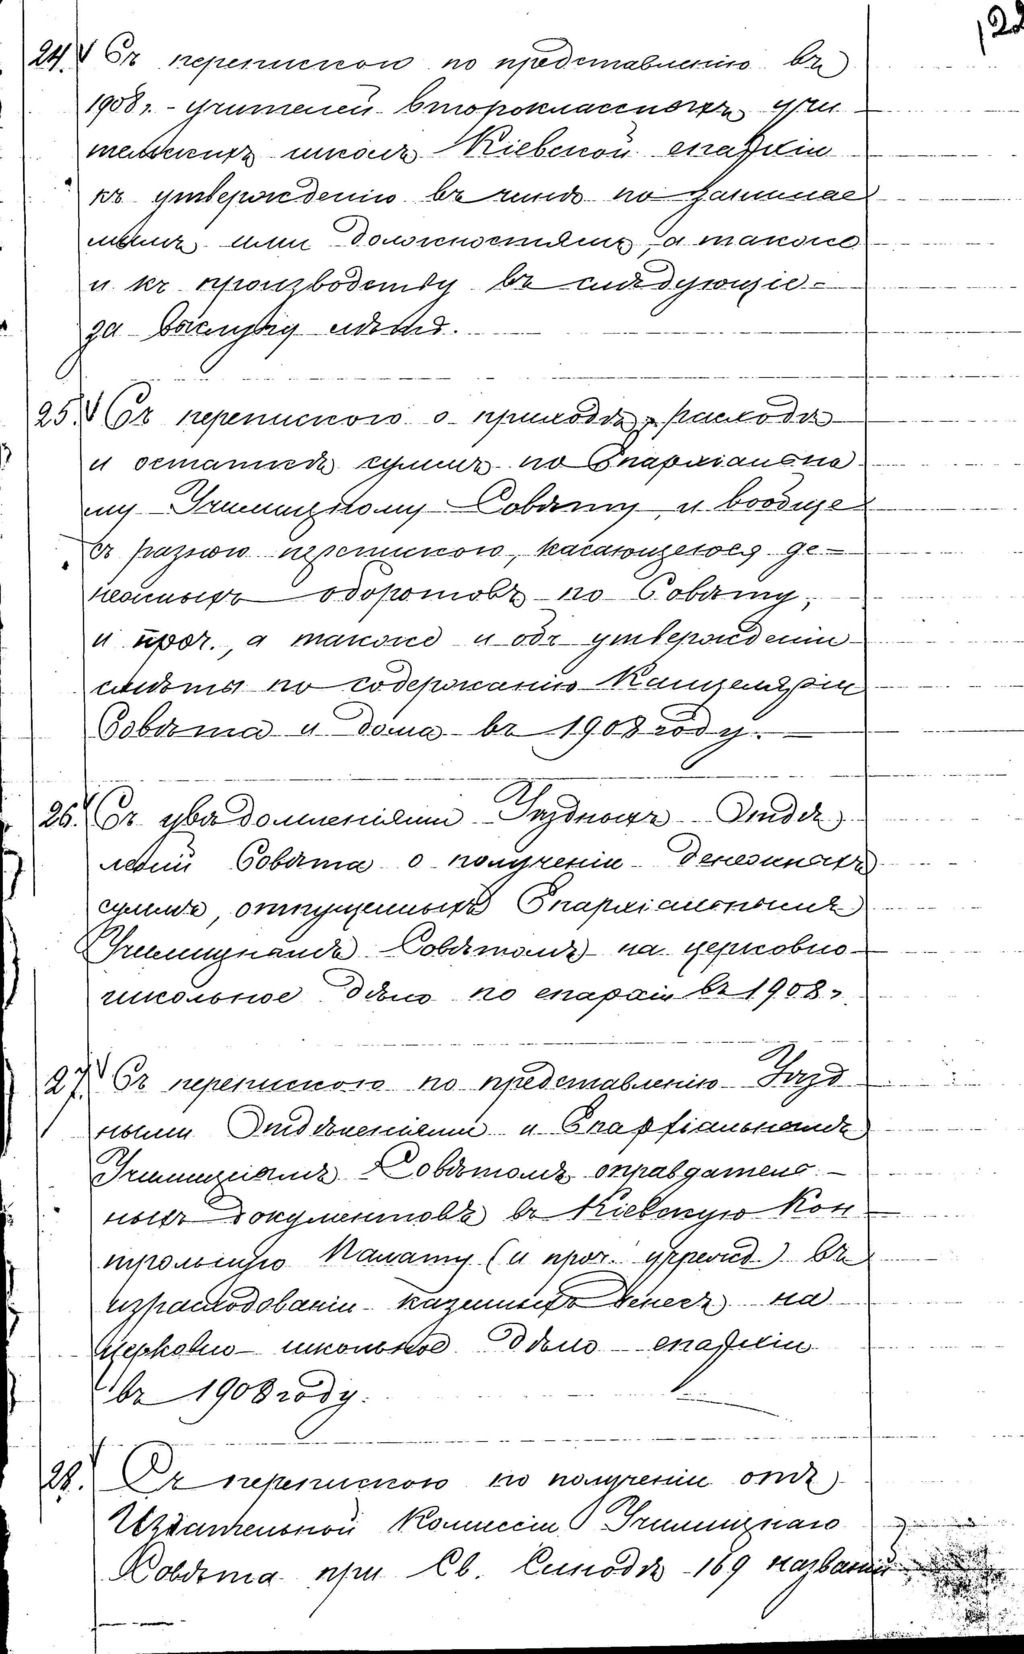 122
24. V Съ перепискою по представленію въ
1908 г. - учителей второклассныхъ учи
тельскихъ школъ Кіевской епархіи
къ утвержденію въ чинѣ по занимае
мымъ ими должностямъ, а также
и къ производству въ слѣдующіе -
за выслугу лѣтъ.
25. V Съ перепискою о приходѣ, расходѣ
и остаткѣ суммъ по Епархіально
му Училищному Совѣту, и вообще
съ разною перепискою, касающеюся де-
нежныхъ оборотовъ по Совѣту,
и проч., а также и объ утвержденіи
смѣты по содержанію Канцеляріи
Совѣта и дома въ 1908 году. -
26. V Съ увѣдомленіями Уѣздныхъ Отдѣ
леній Совѣта о полученіи денежныхъ
суммъ, отпущенныхъ Епархіальнымъ
Училищнымъ Совѣтомъ на церковно-
школьное дѣло по епархіи въ 1908 г.
27. V Съ перепискою по представленію Уѣзд
ными Отдѣленіями и Епархіальнымъ
Училищнымъ Совѣтомъ оправдатель-
ныхъ документовъ въ Кіевскую Кон
трольную Палату (и проч. учрежд.) въ
израсходованіи казенныхъ денегъ на
церковно-школьное дѣло епархіи
въ 1908 году.
28. V Съ перепискою по полученіи отъ
Издательной Коммиссіи Училищнаго
Совѣта при Св. Синодѣ 169 названій